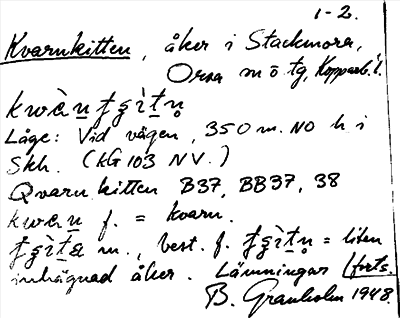 1-2.
Kvarnkitten, åker i Stackmora,
Orsa m ö tg, Kopparb. l.
kwæ̀ṉ ʈʂìṯṉ̥
Läge: Vid vägen, 350 m. NO h i
Skh. (KG 103 NV.)
Qvarnkitten B37, BB37, 38
kwæṉ f. = kvarn.
ʈʂìṯa m., best. f. ʈʂìṯṉ̥ = liten
inhägnad åker. Lämningar (forts.
B. Granholm 1948.